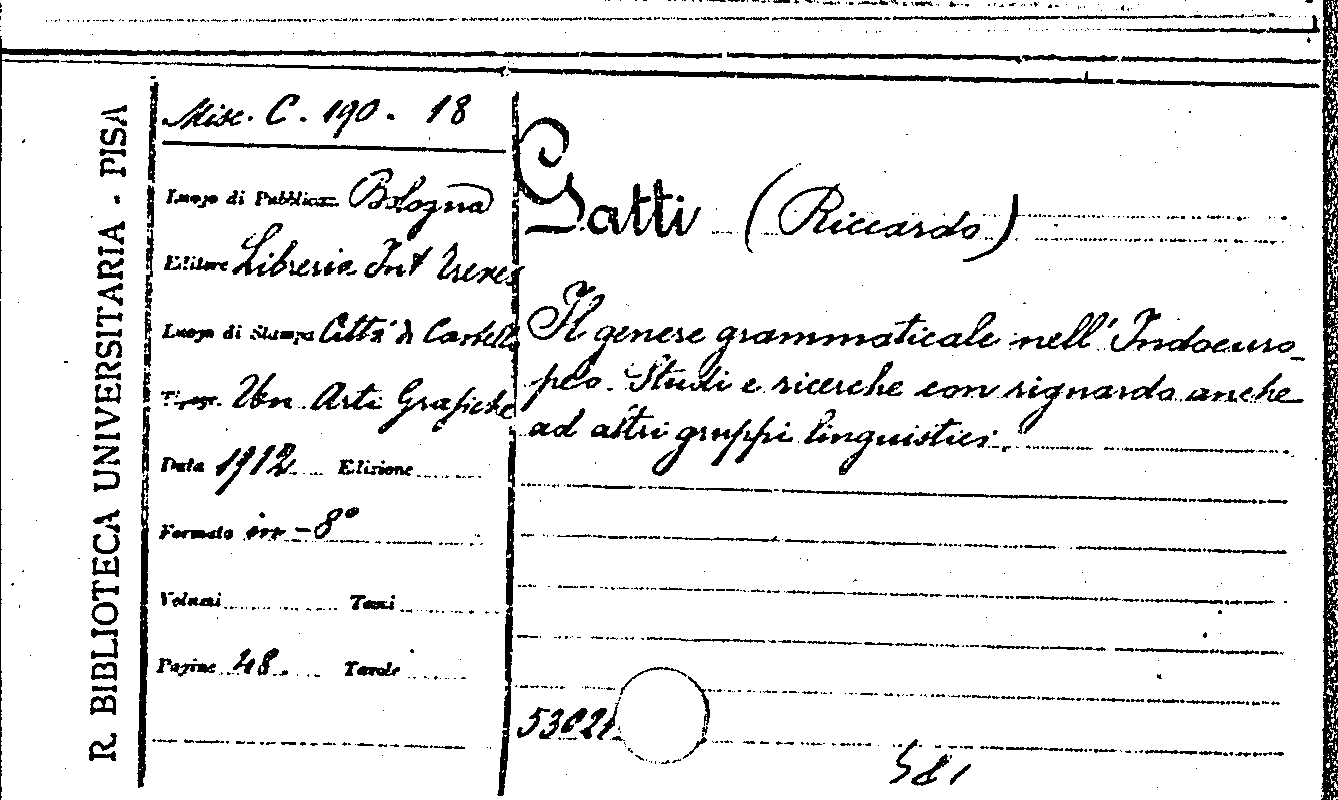 R. BIBLIOTECA UNIVERSITARIA - PISA
Misc. C. 190. 18
Luogo di Pubblicaz. Bologna
Editore Libreria Int Treves
Luogo di Stampa Città di Castello
Tipogr. Un. Arti Grafiche
Data 1912 Edizione
Formato in-8°
Volumi Tomi
Pagine 48. Tavole
Gatti (Riccardo)
Il genere grammaticale nell'Indoeuro-
peo. Studi e ricerche con riguardo anche
ad altri gruppi linguistici.
581